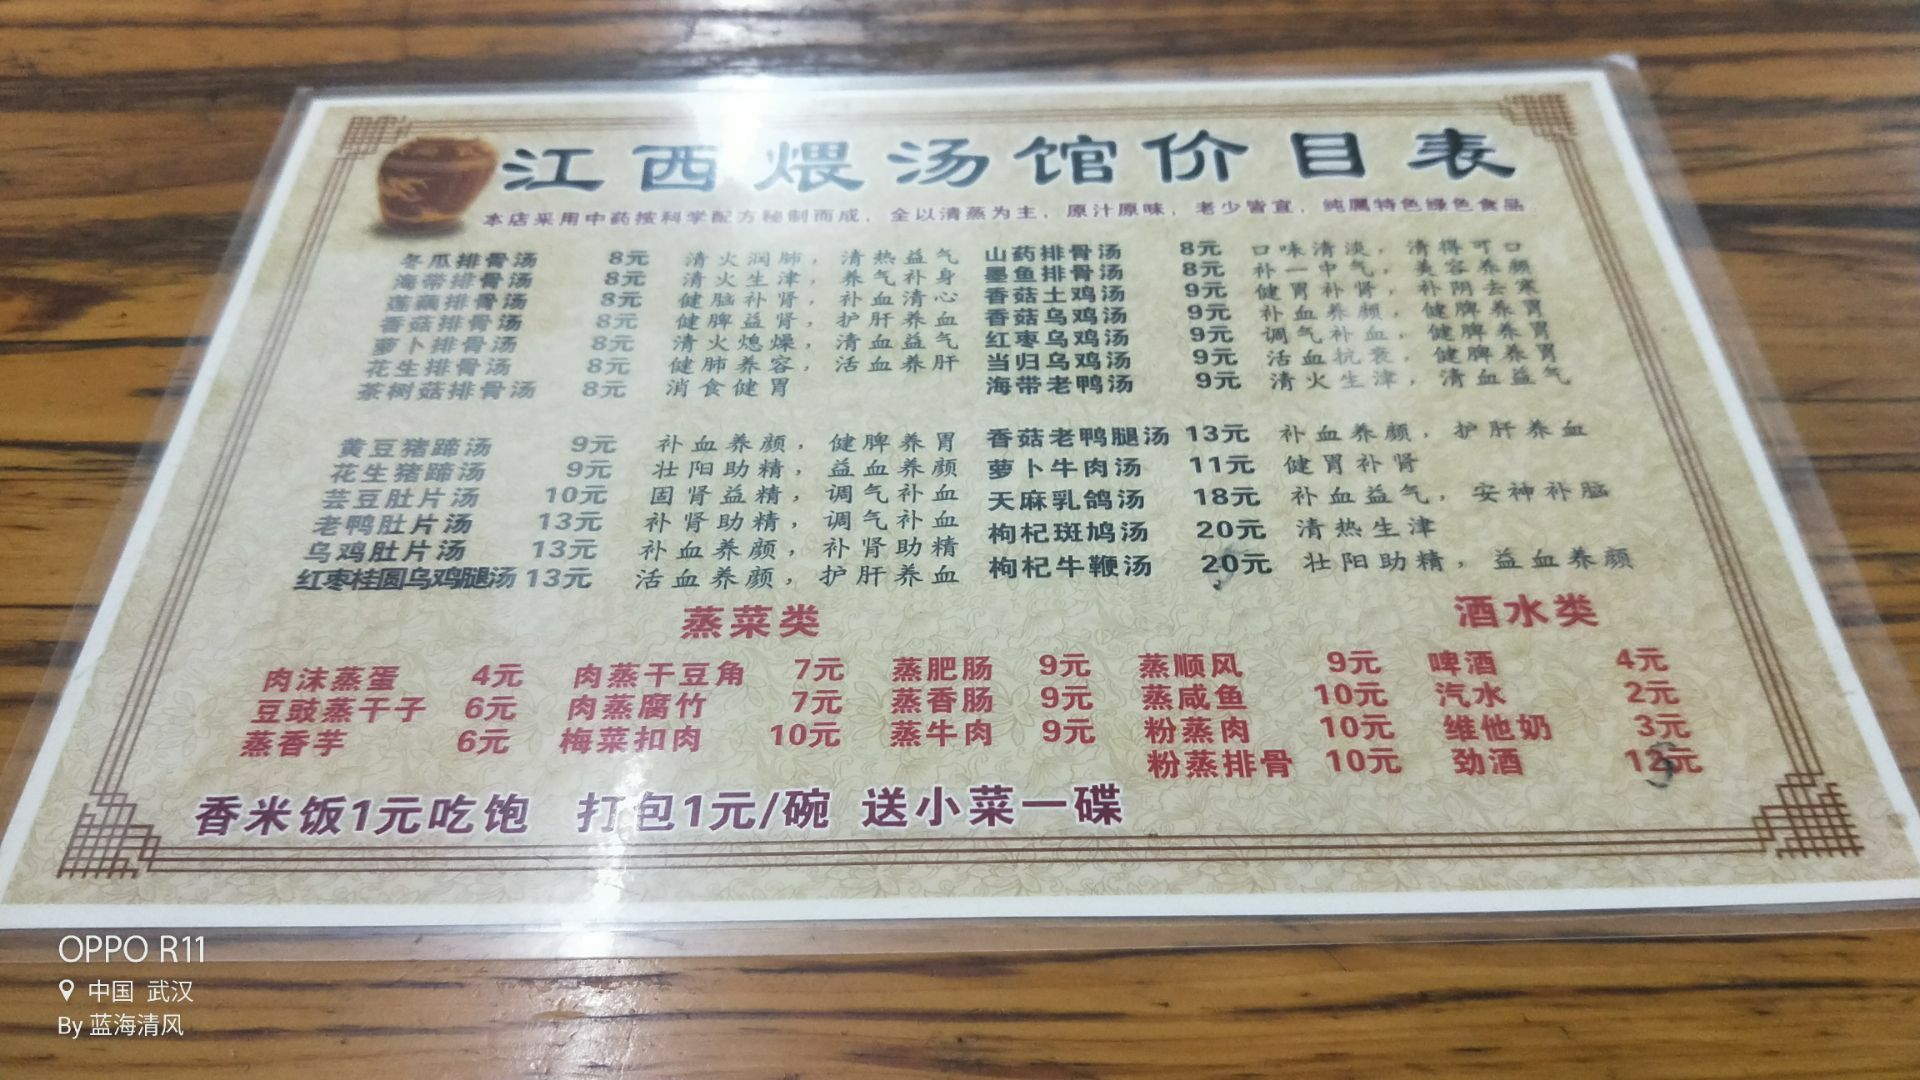 江西煨汤馆价目表
本店采用中药按科学配方秘制而成，全以清蒸为主，原汁原味，老少皆宜，纯属特色绿色食品
冬瓜排骨汤 8元 清火润肺，清热益气
海带排骨汤 8元 清火生津，养气补身
莲藕排骨汤 8元 健脑补肾，补血清心
香菇排骨汤 8元 健脾益肾，护肝养血
萝卜排骨汤 8元 清火熄燥，清血益气
花生排骨汤 8元 健肺养容，活血养肝
茶树菇排骨汤 8元 消食健胃
黄豆猪蹄汤 9元 补血养颜，健脾养胃
花生猪蹄汤 9元 壮阳助精，益血养颜
芸豆肚片汤 10元 固肾益精，调气补血
老鸭肚片汤 13元 补肾助精，调气补血
乌鸡肚片汤 13元 补血养颜，补肾助精
红枣桂圆乌鸡腿汤 13元 活血养颜，护肝养血
山药排骨汤 8元 口味清淡，清得可口
墨鱼排骨汤 8元 补一中气，美容养颜
香菇土鸡汤 9元 健胃补肾，补阴去寒
香菇乌鸡汤 9元 补血养颜，健脾养胃
红枣乌鸡汤 9元 调气补血，健脾养胃
当归乌鸡汤 9元 活血抗衰，健脾养胃
海带老鸭汤 9元 清火生津，清血益气
香菇老鸭腿汤 13元 补血养颜，护肝养血
萝卜牛肉汤 11元 健胃补肾
天麻乳鸽汤 18元 补血益气，安神补脑
枸杞斑鸠汤 20元 清热生津
枸杞牛鞭汤 20元 壮阳助精，益血养颜
蒸菜类
肉沫蒸蛋 4元 肉蒸干豆角 7元 蒸肥肠 9元 蒸顺风 9元
豆豉蒸干子 6元 肉蒸腐竹 7元 蒸香肠 9元 蒸咸鱼 10元
蒸香芋 6元 梅菜扣肉 10元 蒸牛肉 9元 粉蒸肉 10元
粉蒸排骨 10元
酒水类
啤酒 4元
汽水 2元
维他奶 3元
劲酒 12元
香米饭1元吃饱 打包1元/碗 送小菜一碟
OPPO R11
中国 武汉
By 蓝海清风